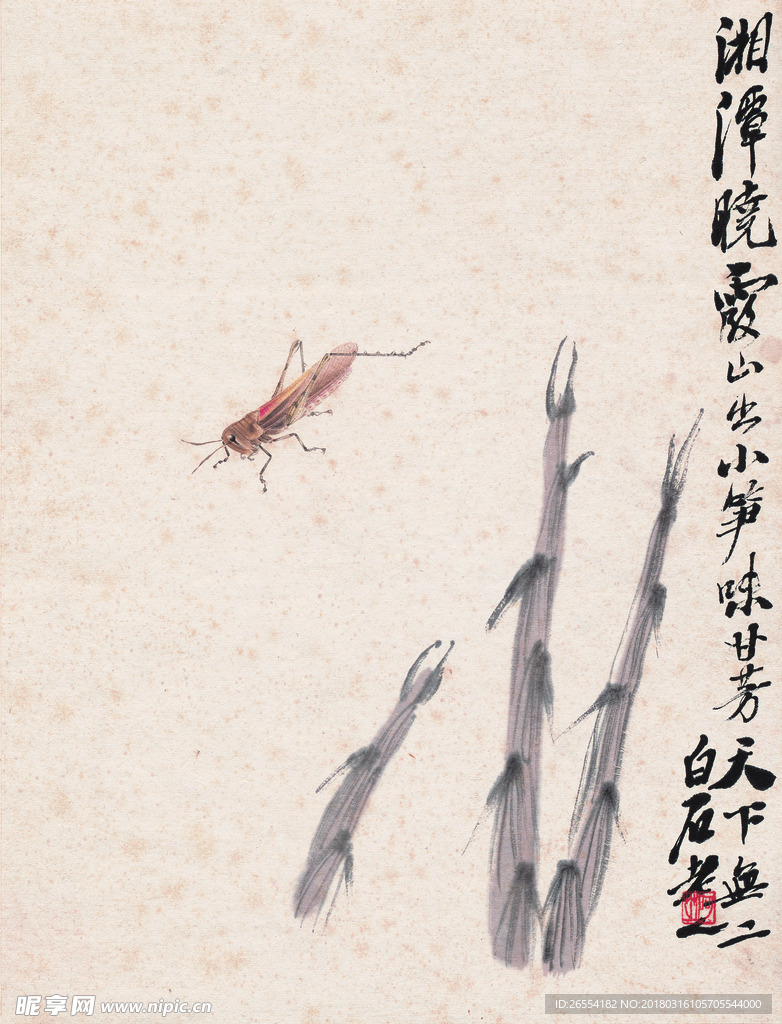 湘潭曉霞山出小笋味甘芳天下無二
白石老人
昵享网 www.nipic.cn
ID:26554182 NO:20180316105705544000